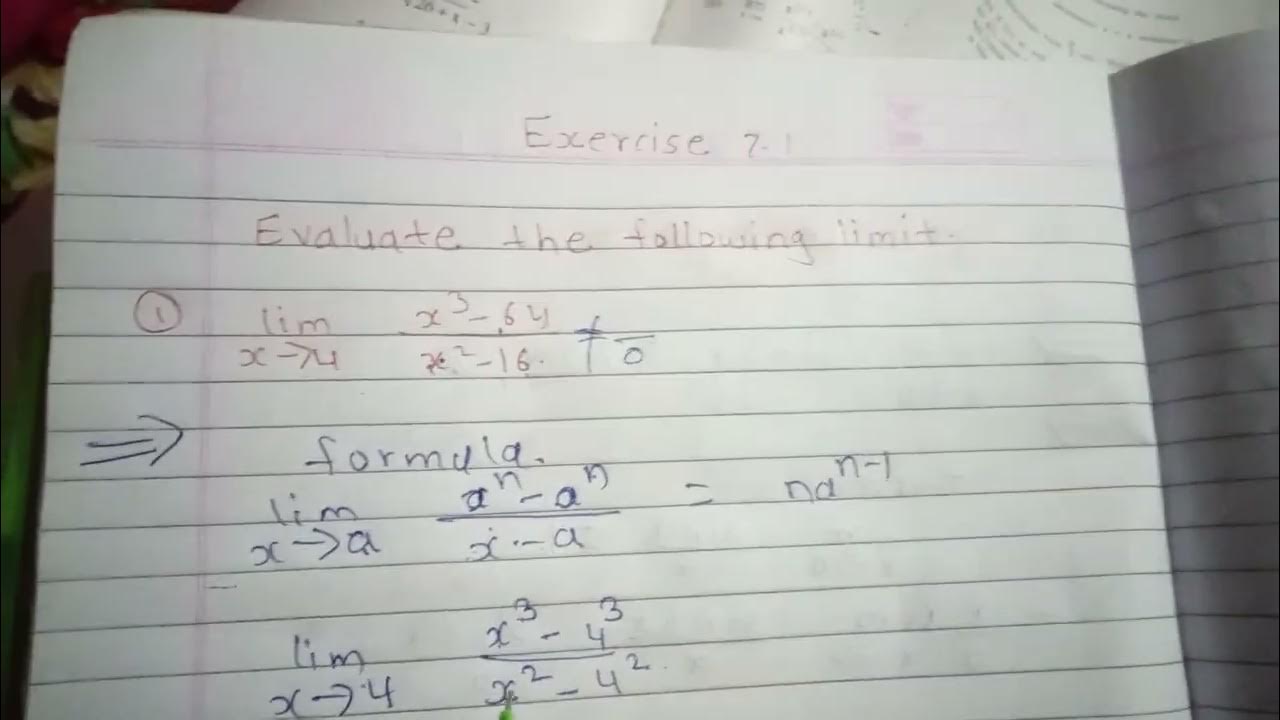 Exercise 7.1
Evaluate the following limit.
① lim x→4 x³-64 / x²-16 ≠ — 0
⇒ formula.
lim x→a aⁿ-aⁿ / x-a = naⁿ⁻¹
lim x→4 x³-4³ / x²-4²